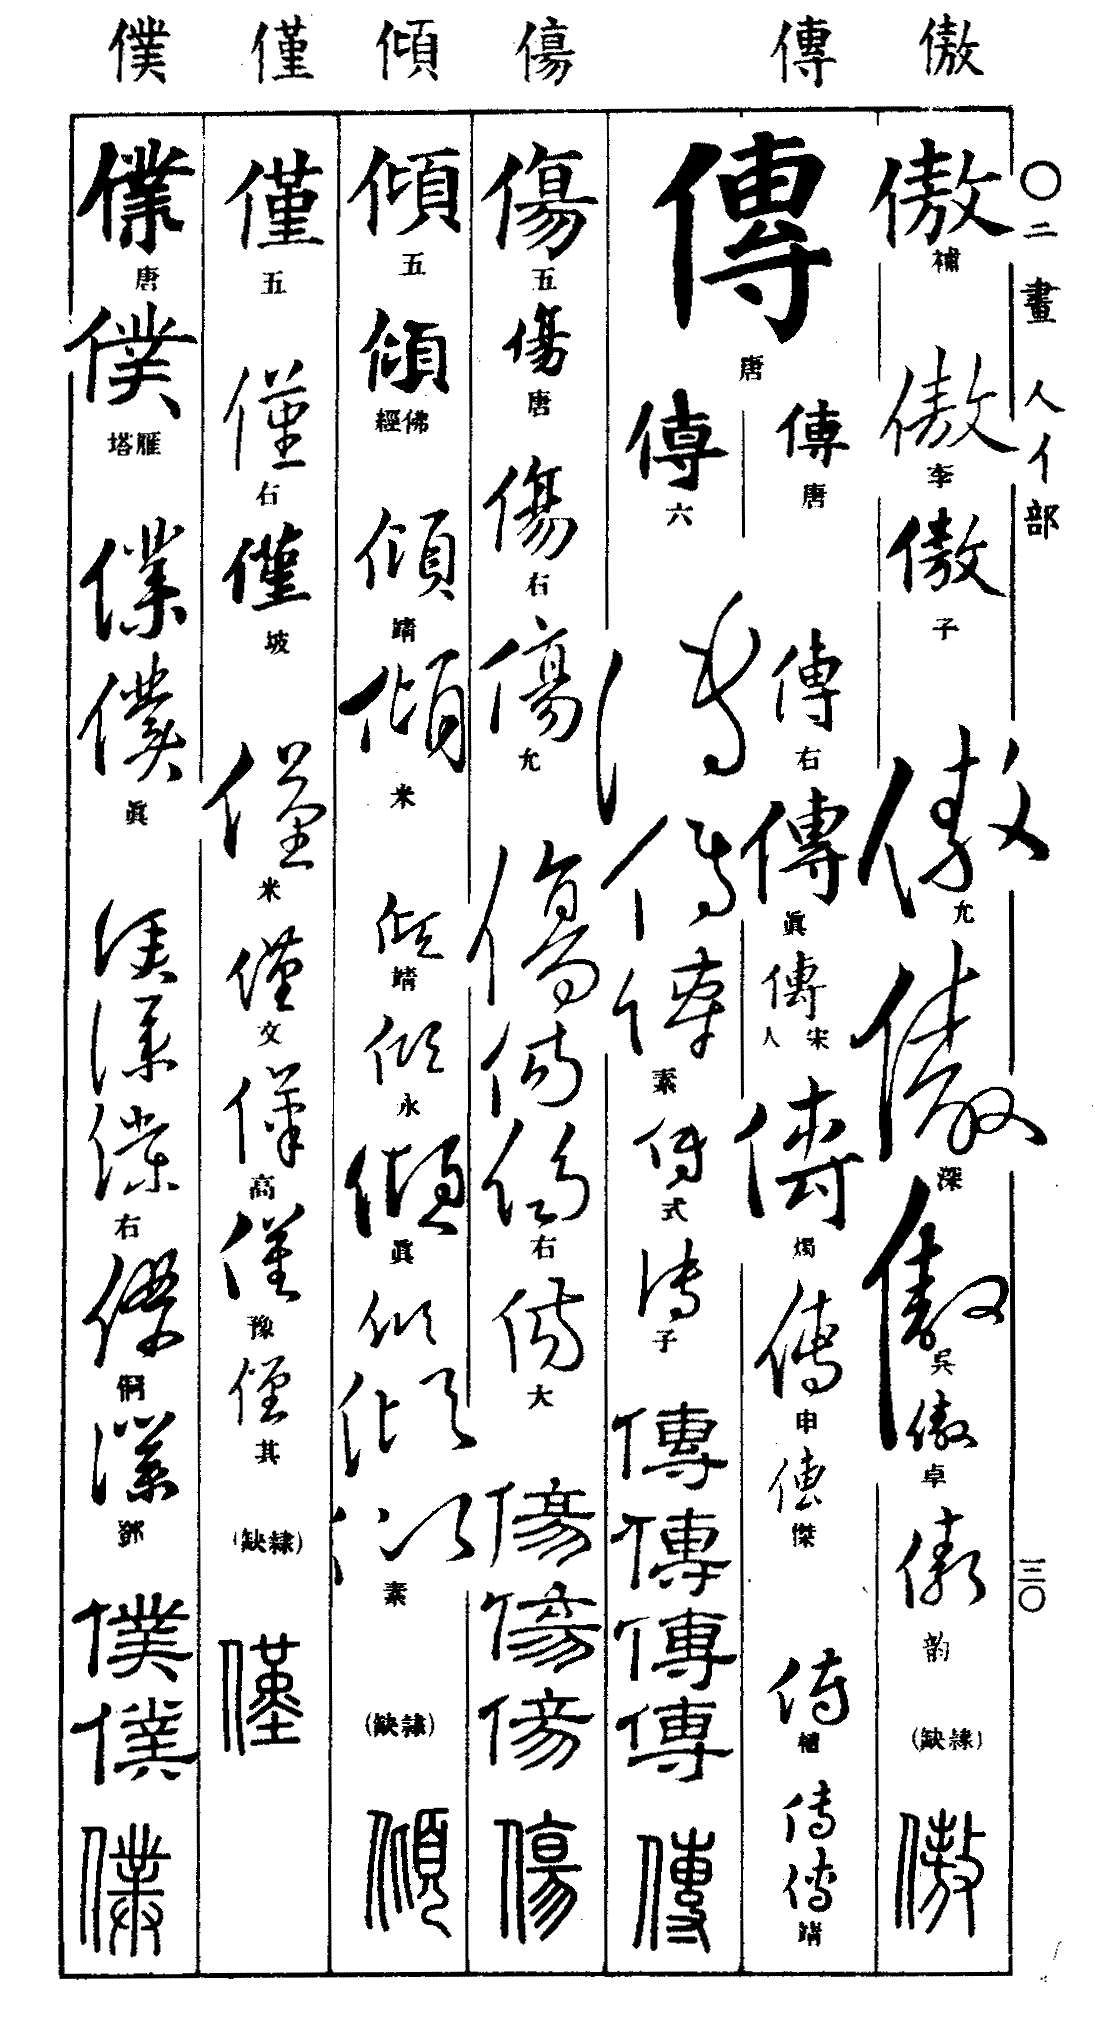 〇二畫 人亻部
三〇
傲 傳 傷 傾 僅 僕
傲 補
傲 李
傲 子
傲 允
傲 深
傲 吳
傲 卓
傲 韵
(隸缺)
傲
傳 唐
傳 唐
傳 右
傳 眞
傳 宋人
傳 燭
傳 申
傳 傑
傳
傳 傳 靖
傳 六
傳 傳 傳 素
傳 式
傳 子
傳 傳 傳 傳
傳
傷 五
傷 唐
傷 右
傷 允
傷 傷 傷 右
傷 大
傷 傷 傷
傷
傾 五
傾 佛經
傾 靖
傾 米
傾 靖
傾 永
傾 眞
傾 傾 傾 素
(隸缺)
傾
僅 五
僅 右
僅 坡
僅 米
僅 文
僅 高
僅 豫
僅 其
(隸缺)
僅
僕 唐
僕 雁塔
僕 僕 眞
僕 僕 僕 右
僕 侗
僕 鄧
僕 僕
僕